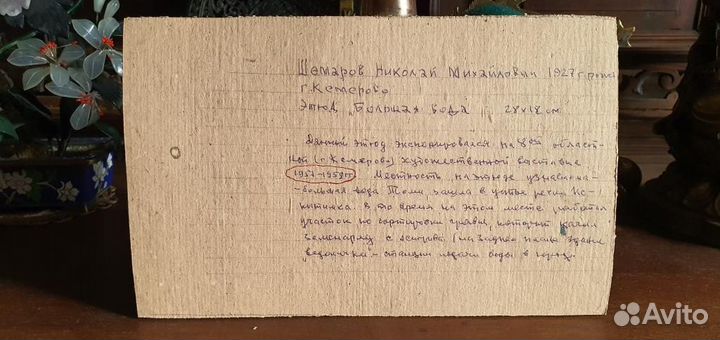 Шемаров Николай Михайлович 1927 г. рожд
г. Кемерово
Этюд Большая вода 28х18 см
Данный этюд экспонировался на 8ой област-
ной (г. Кемерово) художественной выставке
1957-1958гг. Местность на этюде узнаваема
- большая вода Томи зашла в устье речки Ис-
китимка. В то время на этом месте работал
участок по сортировке гравия, который
с (на заднем плане здание
водокачка - станции подачи воды в город.
Avito